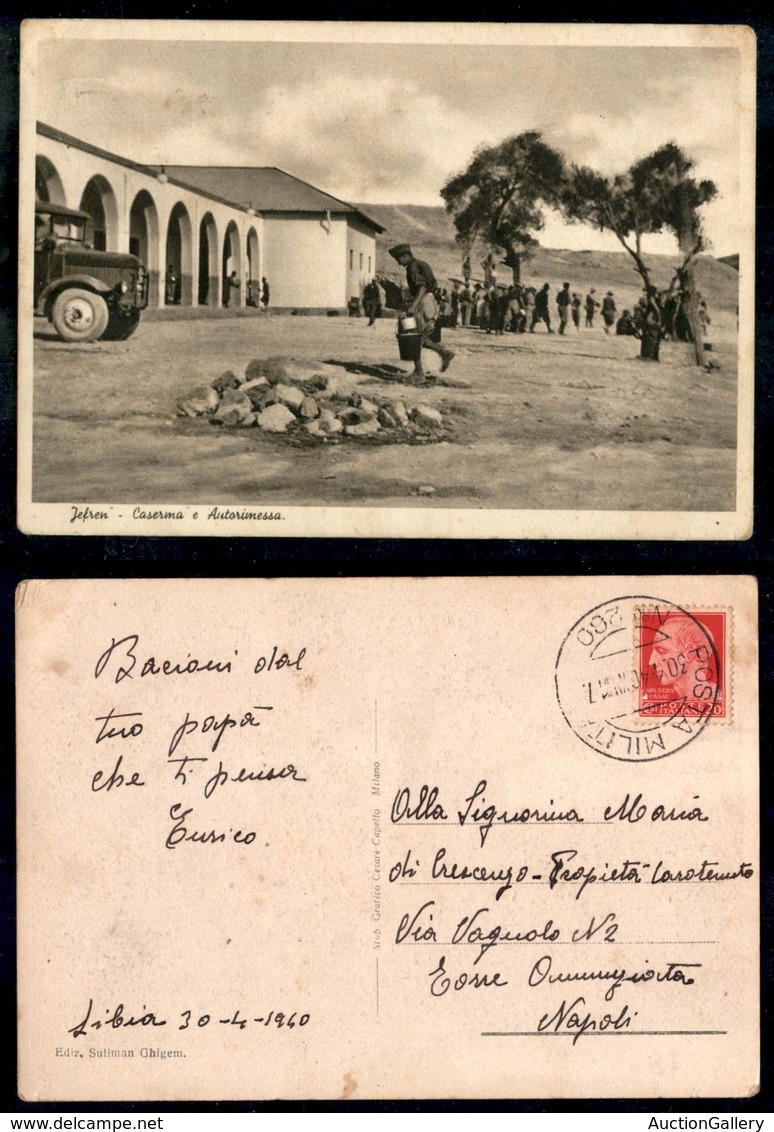 Jefren - Caserma e Autorimessa.
Bacioni dal
tuo papà
che ti pensa
Enrico
Libia 30-4-1940
Ediz. Suliman Ghigem.
Stab. Grafico Cesare Capello Milano
POSTA MILIT
N.RO 260
30.4.40
POSTE ITALIANE
Alla Signorina Maria
di Crescenzo - Propietà Carotenuto
Via Vagnolo N2
Torre Annunziata
Napoli
AuctionGallery